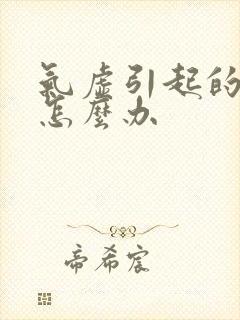 氣虛引起的
怎麼办
帝希宸